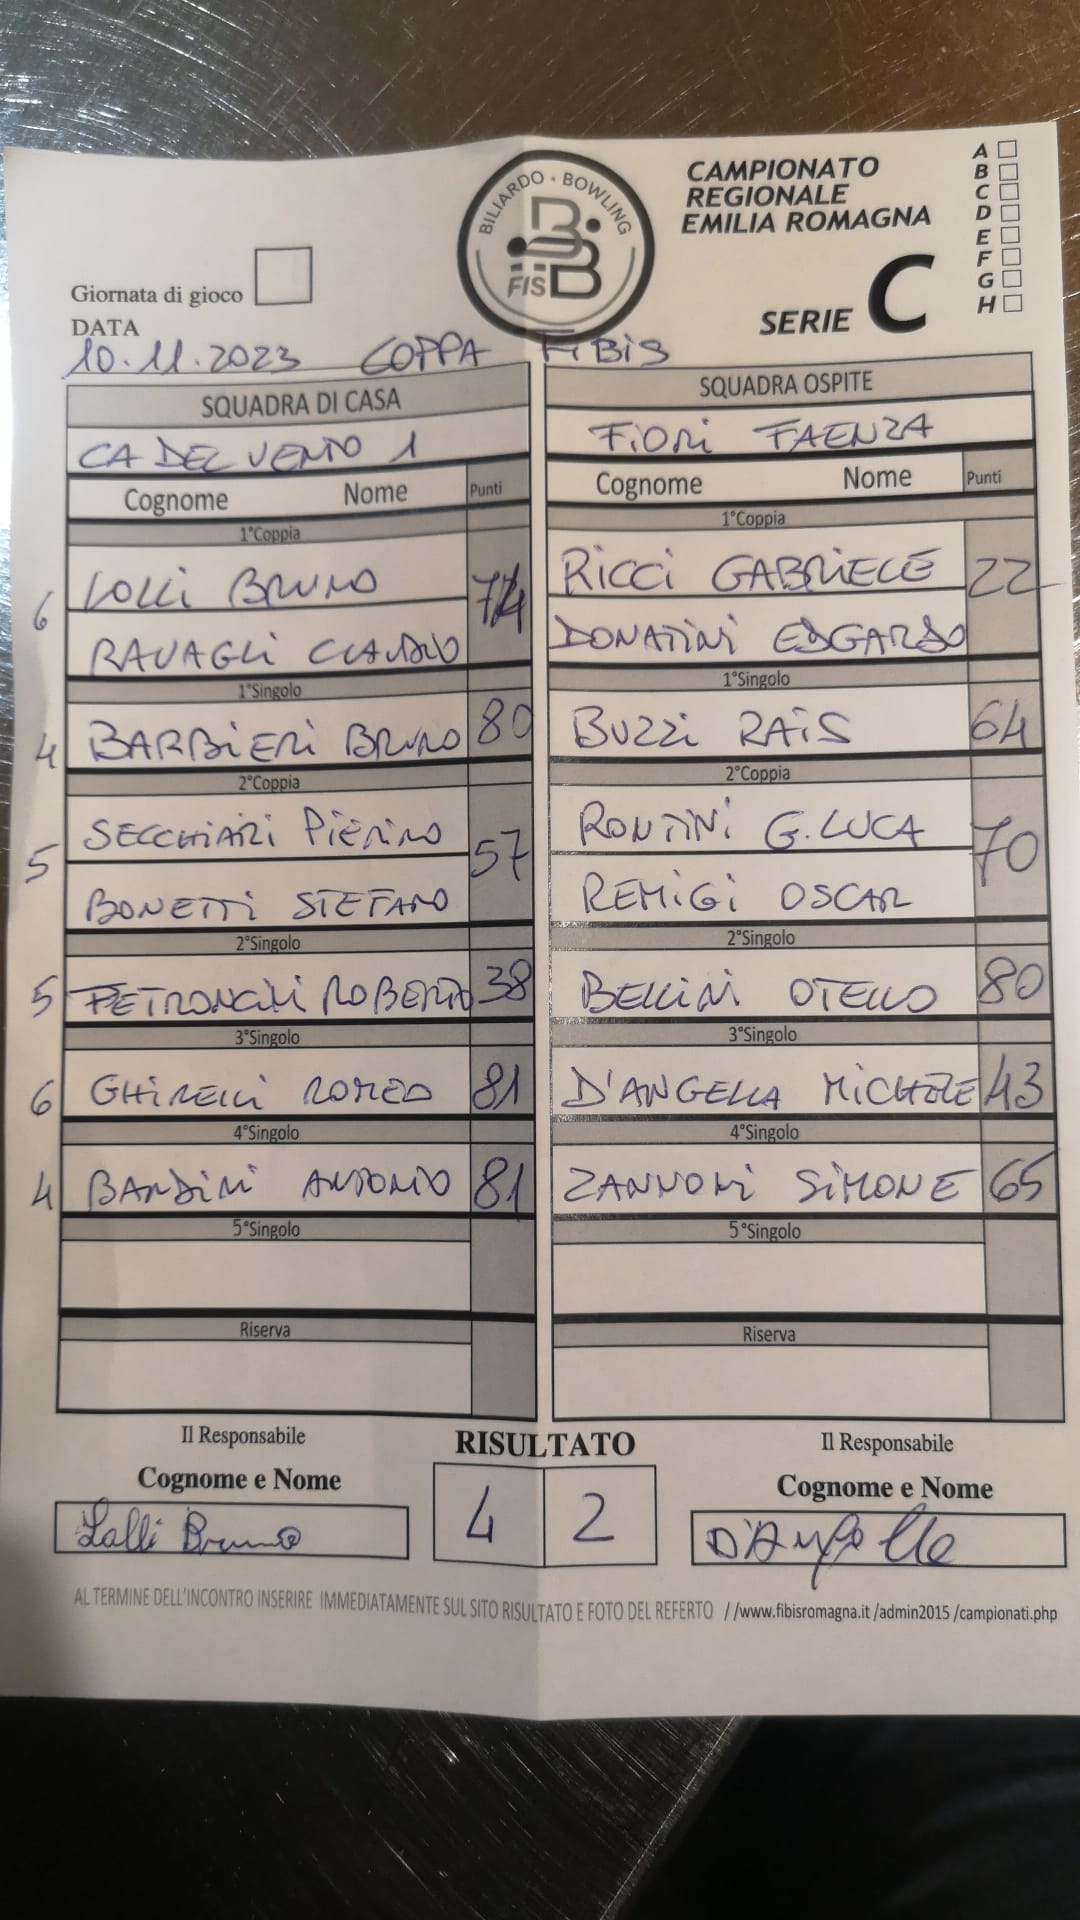 BILIARDO · BOWLING
FISBB
CAMPIONATO
REGIONALE
EMILIA ROMAGNA
SERIE C
A
B
C
D
E
F
G
H
Giornata di gioco
DATA
10.11.2023 COPPA FIBIS
SQUADRA DI CASA
CA DEL VENTO 1
Cognome Nome Punti
1°Coppia
6 LOLLI BRUNO 74
RAVAGLI CLAUDIO
1°Singolo
4 BARBIERI BRUNO 80
2°Coppia
SECCHIARI PIERINO
5 BONETTI STEFANO 57
2°Singolo
5 PETRONCINI ROBERTO 38
3°Singolo
6 GHIRELLI ROMEO 81
4°Singolo
4 BANDINI ANTONIO 81
5°Singolo
Riserva
SQUADRA OSPITE
FIORI FAENZA
Cognome Nome Punti
1°Coppia
RICCI GABRIELE 22
DONATINI EDGARDO
1°Singolo
BUZZI RAIS 64
2°Coppia
RONTINI G.LUCA 70
REMIGI OSCAR
2°Singolo
BELLINI OTELLO 80
3°Singolo
D'ANGELLA MICHELE 43
4°Singolo
ZANNONI SIMONE 65
5°Singolo
Riserva
Il Responsabile
Cognome e Nome
Lolli Bruno
RISULTATO
4 2
Il Responsabile
Cognome e Nome
AL TERMINE DELL'INCONTRO INSERIRE IMMEDIATAMENTE SUL SITO RISULTATO E FOTO DEL REFERTO //www.fibisromagna.it /admin2015 /campionati.php